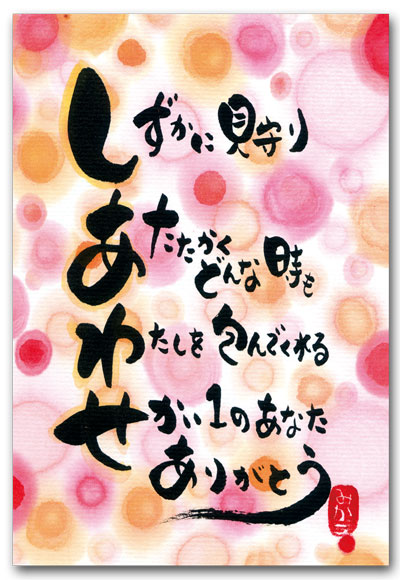 しずかに見守り
あたたかく
どんな時も
わたしを包んでくれる
せかい1のあなた
ありがとう
みかこ